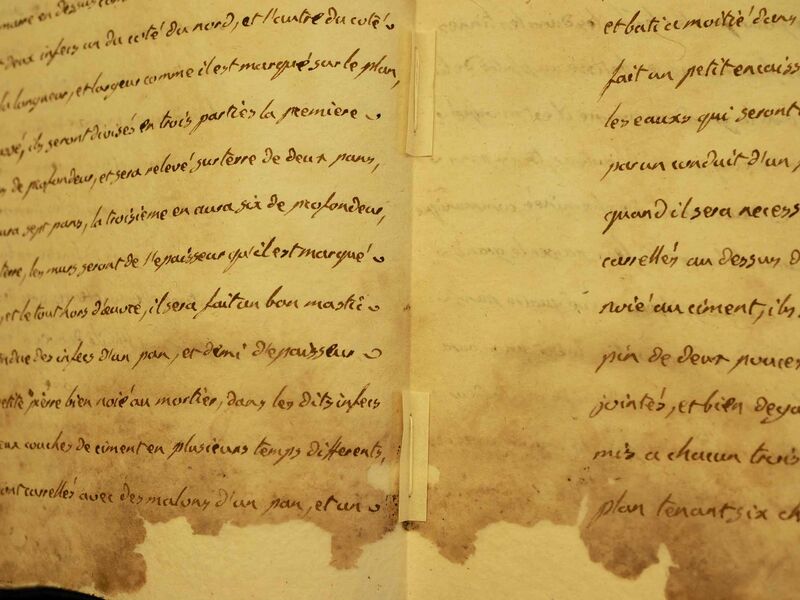 en dessus
deux infects un du coté du nord, et l'autre du coté
la longueur, et largeur comme il est marqué sur le plan,
ils seront divisés en trois parties la premiere
de profondeur, et sera relevé sur terre de deux pans,
aura sept pans, la troisieme en aura six de profondeur,
terre, les murs seront de l'epaisseur qu'il est marqué
et le tout hors d'œuvre, il sera fait un bon mastic
des infects d'un pan, et demi d'epaisseur
petite pierre bien noié au mortier, dans les dits infects
deux couches de ciment en plusieurs temps differents,
carrellés avec des malons d'un pan, et un
et bati a moitié dans
fait un petit encaiss
les eaux qui seront
par un conduit d'un p
quand il sera necess
carrellés au dessus d
noié au ciment, ils
pin de deux pouces
jointés, et bien
mis a chacun trois
plan tenant six ch